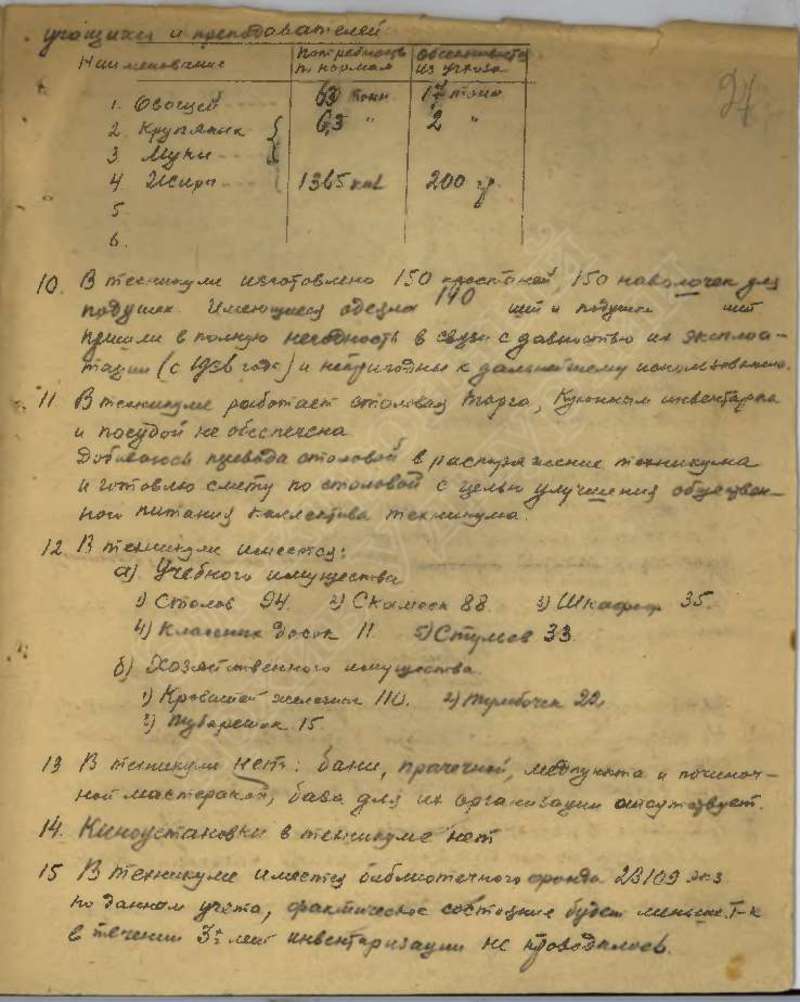 учащихся и преподавателей
Наименование Потребность по нормам Обеспечивается из учхоза
27
1. Овощей 63 тонн 17 тонн
2. Крупяных 6,3 " 2 "
3 Муки
4 Жиры 1365 200
5
6.
10. В техникуме изготовлено 150 простыней, 150 наволочек для
подушек. Имеющиеся одеяла 140 шт и подушки шт
пришли в полную негодность в связи с давностью их эксплоа-
тации (с 1936 года) и непригодны к дальнейшему использованию.
11 В техникуме работает столовая торга, Кухонным инвентарем
и посудой не обеспечена
Добиваюсь перевода столовой в распоряжение техникума
и готовлю смету по столовой с целью улучшения обществен-
ного питания коллектива техникума.
12. В техникуме имеется:
а) Учебного имущества
1) Столов 94. 2) Скамеек 88 3) Шкафов 35.
4) Классных досок 11 5) Стульев 33
б) Хозяйственного имущества
1) Кроватей железных 110. 2) Тумбочек 22,
3) Табуреток 15.
13 В техникуме нет: бани, прачечной, медпункта и починоч-
ной мастерской, база для их организации отсутствует.
14. Киноустановки в техникуме нет
15 В техникуме имеется библиотечного фонда 23109 экз
по данным учета, фактическое состояние будет меньше, т-к
в течении 3х лет инвентаризации не проводилось.